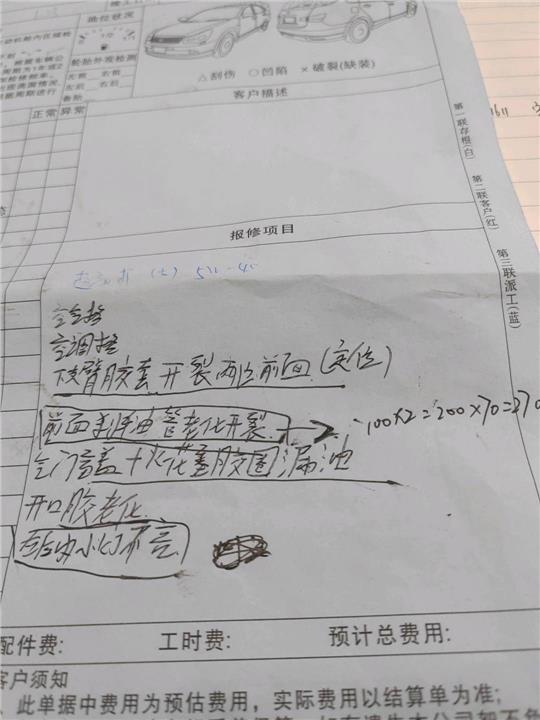 油位状况
轮胎外观检测
左前 右前
左后 右后
备胎
正常 异常
△刮伤 ○凹陷 ×破裂(缺装)
客户描述
第一联存根(白)
第二联客户(红)
第三联派工(蓝)
报修项目
空气格
空调格
下支臂胶套开裂两边前面(定位)
前面刹车油管老化开裂
100×2=200×70=270
气门室盖+火花塞胶圈漏油
开口胶老化
左后边小灯不亮
配件费: 工时费: 预计总费用:
客户须知
、此单据中费用为预估费用，实际费用以结算单为准;